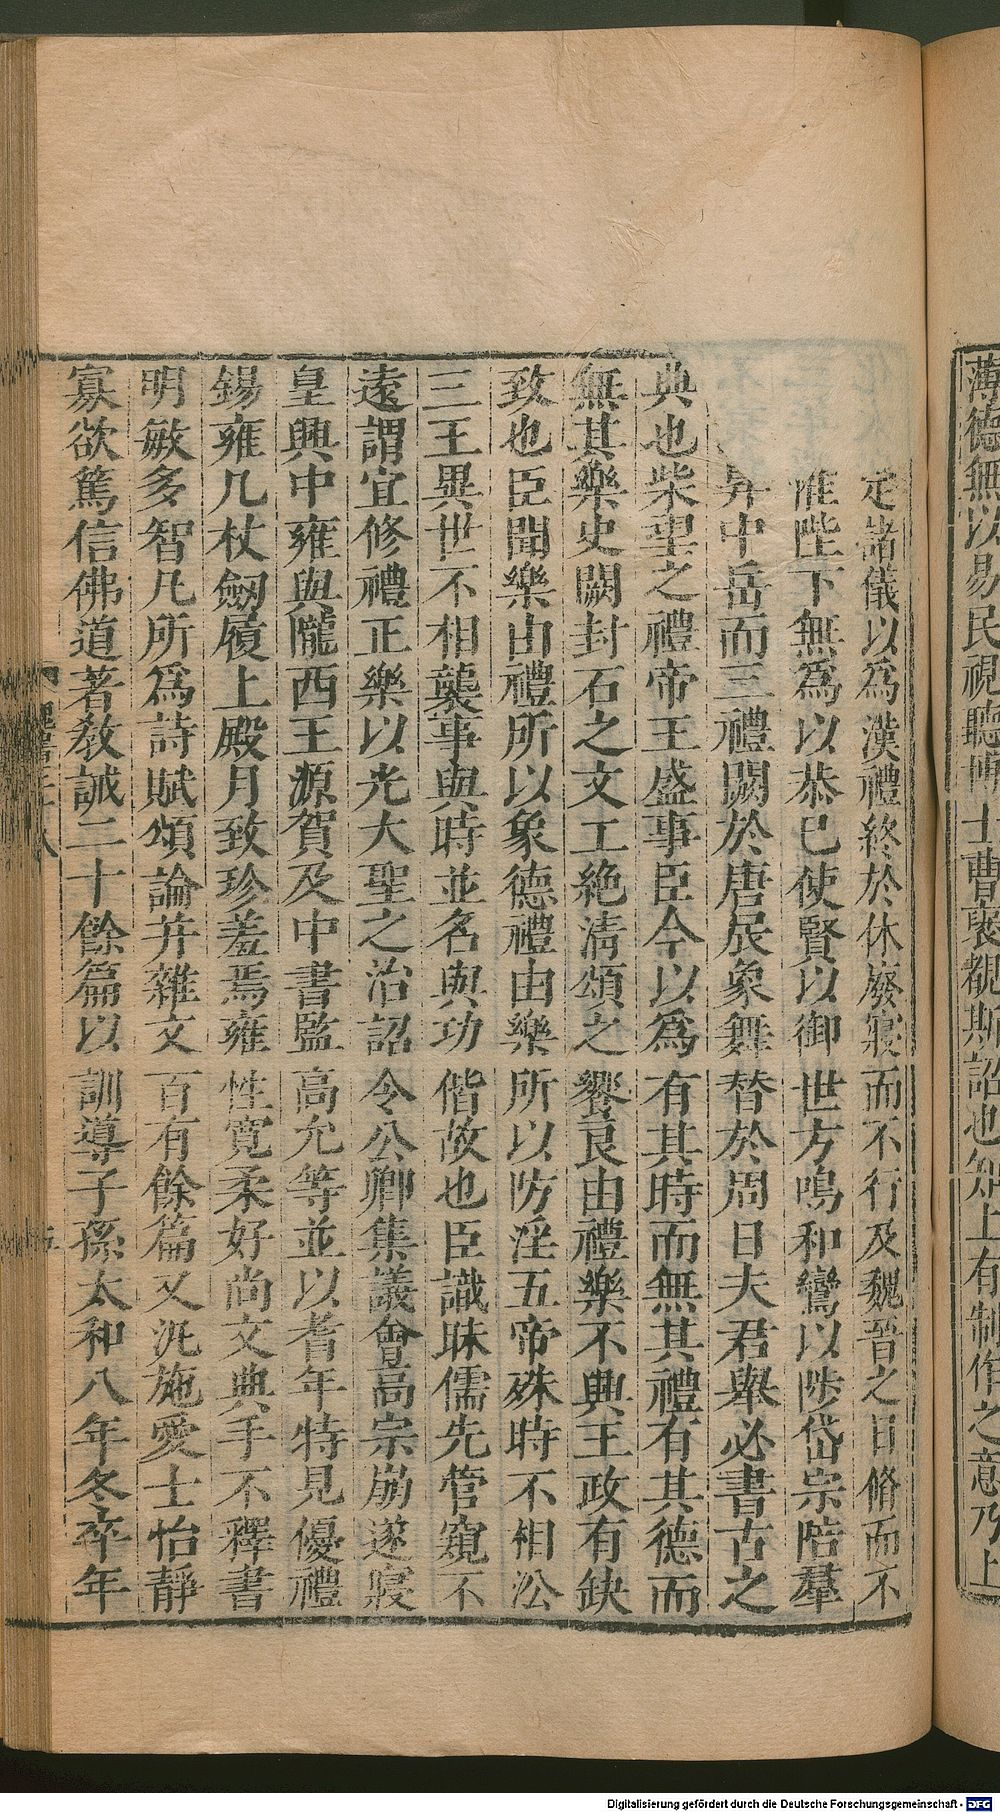 薄德無以易民視聽博士曹褒覩斯詔也知上有制作之意乃上
定諸儀以為漢禮終於休廢寢而不行及魏晉之日脩而不
准陛下無為以恭已使賢以御世方鳴和鸞以陟岱宗陪羣
昇中岳而三禮闕於唐辰象舞替於周日夫君舉必書古之
典也柴望之禮帝王盛事臣今以為有其時而無其禮有其德而
無其樂史闕封石之文工絶清頌之饗良由禮樂不興王政有缺
致也臣聞樂由禮所以象德禮由樂所以防淫五帝殊時不相沿
三王異世不相襲事與時並名與功偕故也臣識昧儒先管窺不
遠謂宜修禮正樂以光大聖之治詔令公卿集議會高宗崩遂寢
皇興中雍與隴西王源賀及中書監高允等並以耆年特見優禮
錫雍几杖劒履上殿月致珍羞焉雍性寛柔好尚文典手不釋書
明敏多智凡所為詩賦頌論并雜文百有餘篇又汎施愛士怡靜
寡欲篤信佛道著敎誡二十餘篇以訓導子孫太和八年冬卒年
Digitalisierung gefördert durch die Deutsche Forschungsgemeinschaft - DFG